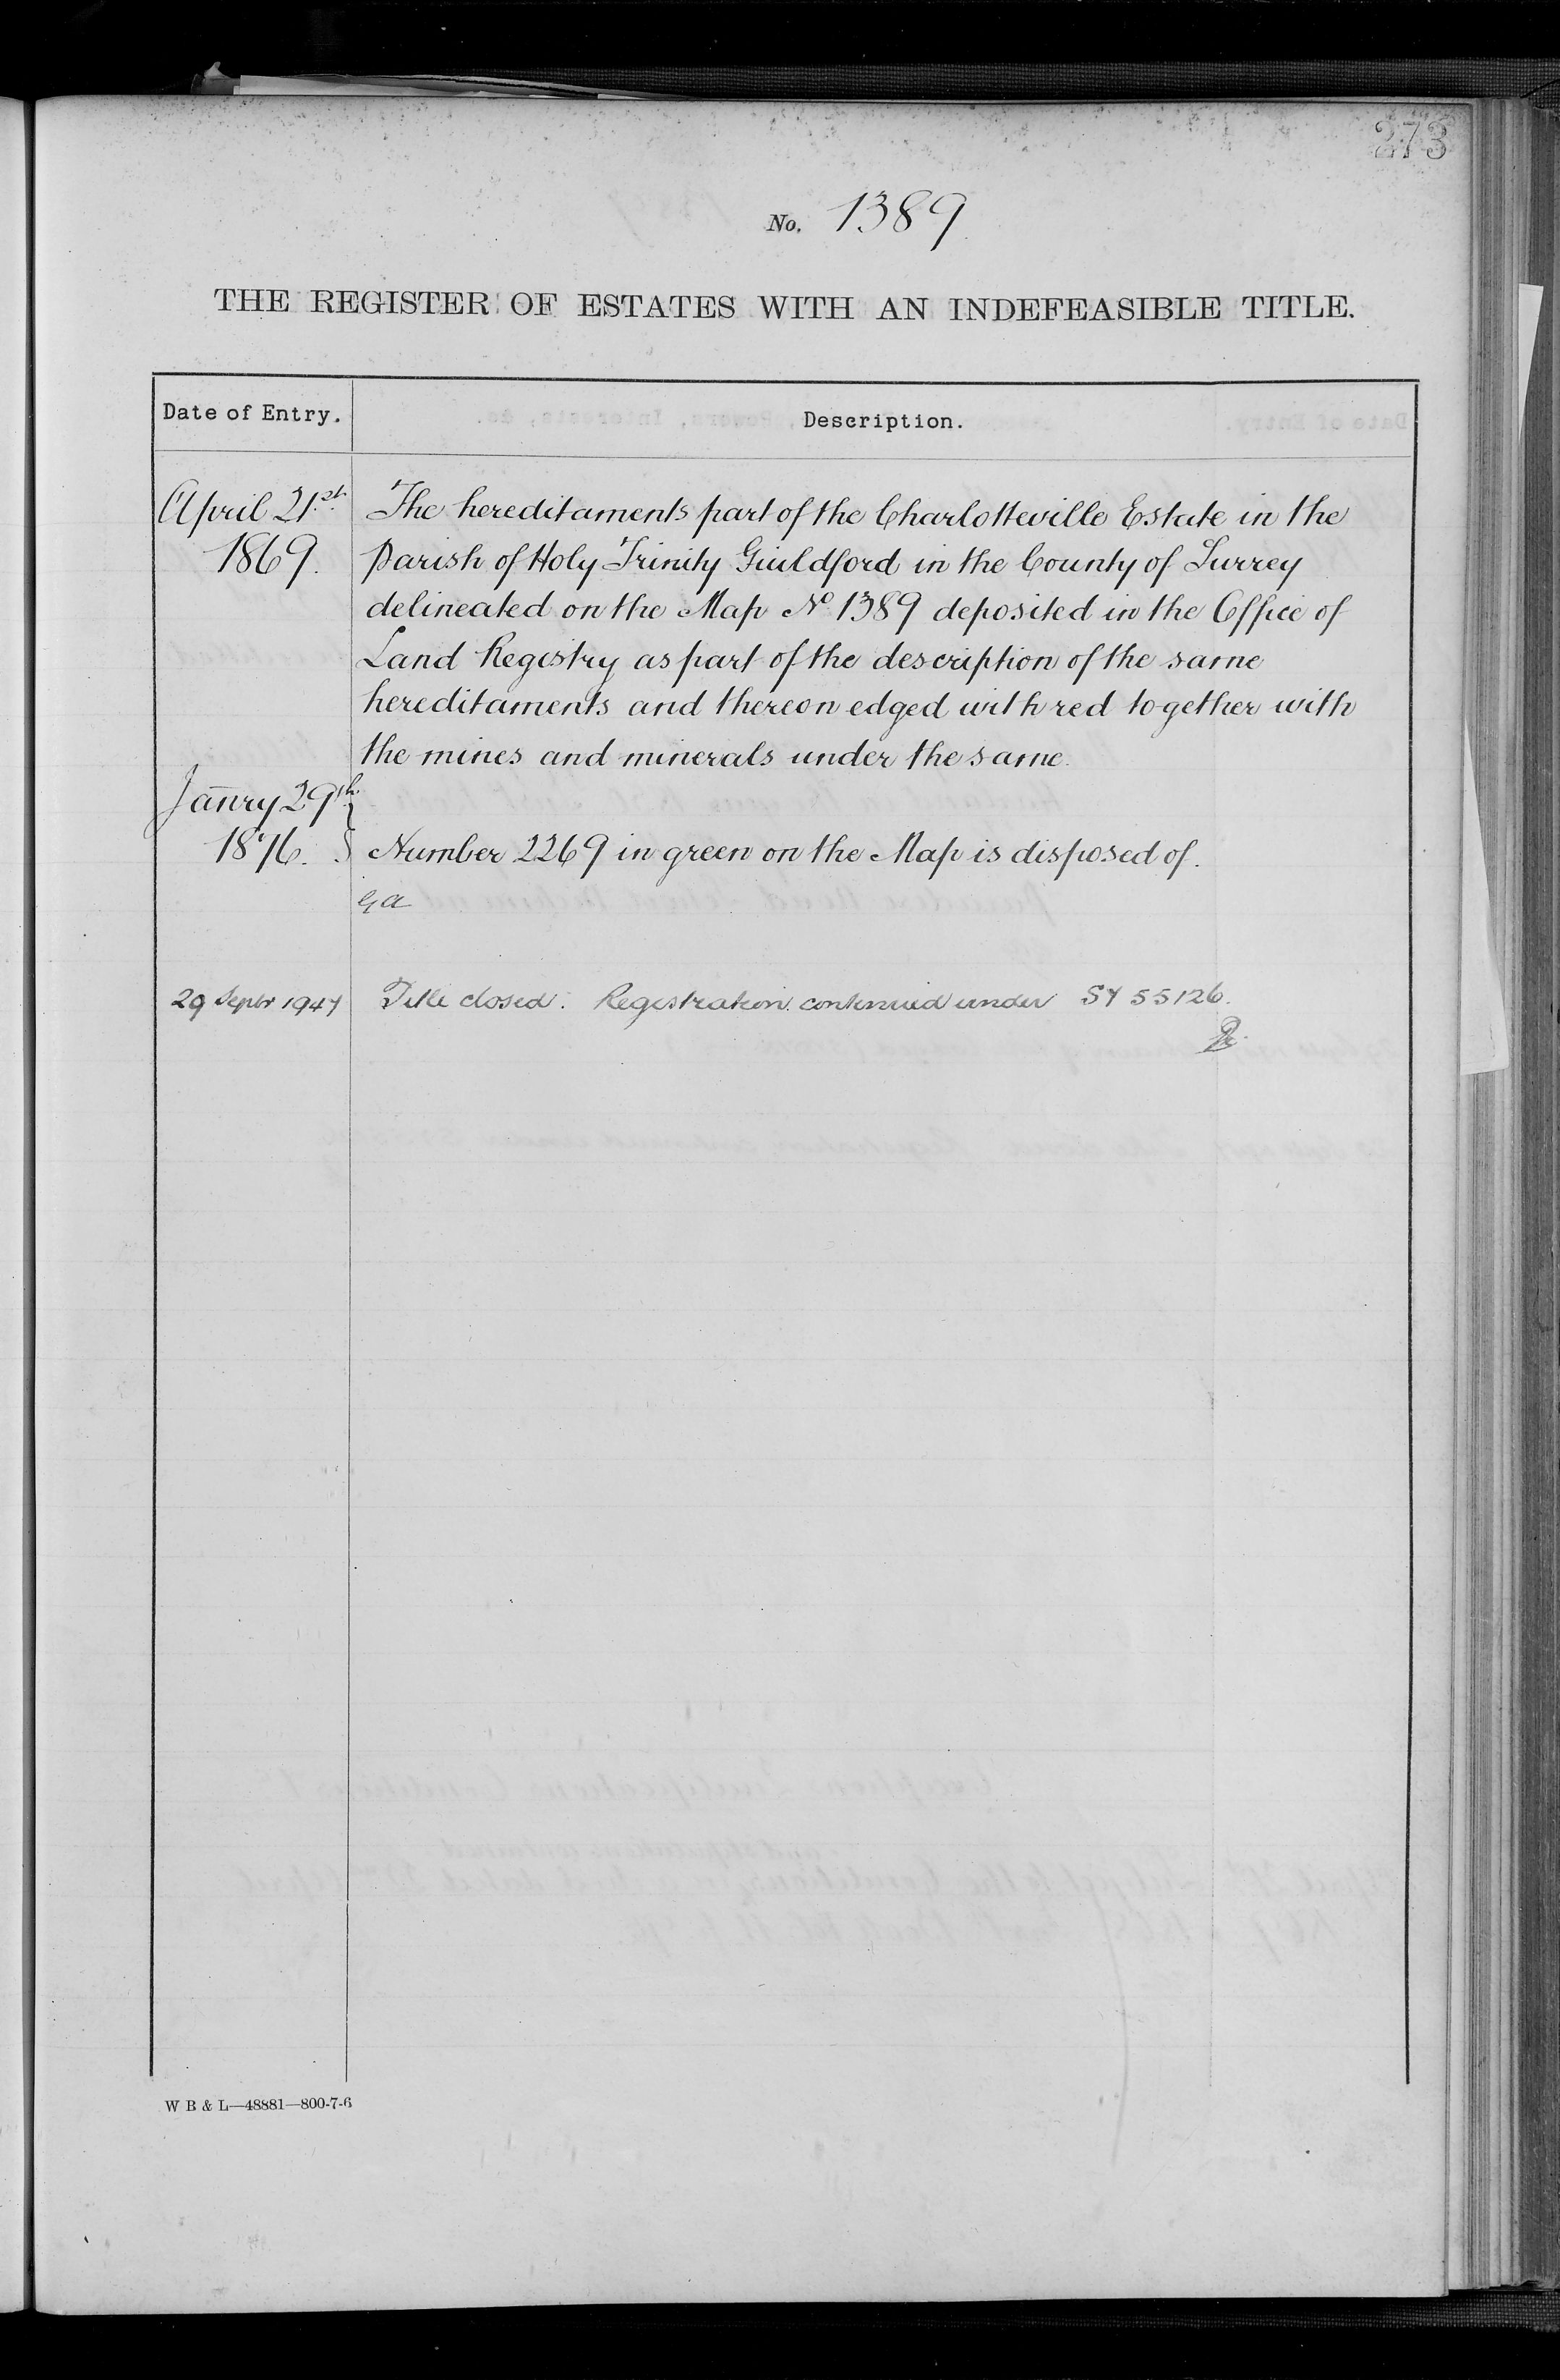 273
No. 1389
THE REGISTER OF ESTATES WITH AN INDEFEASIBLE TITLE.
Date of Entry. Description.
April 21st. The hereditaments part of the Charlotteville Estate in the
1869. Parish of Holy Trinity Guildford in the County of Surrey
delineated on the Map No. 1389 deposited in the Office of
Land Registry as part of the description of the same
hereditaments and thereon edged with red together with
the mines and minerals under the same.
Janry 29th.
1876. Number 2269 in green on the Map is disposed of.
29 Septr 1947 Title closed. Registration continued under SY 55126.
W B & L—48881—800-7-6